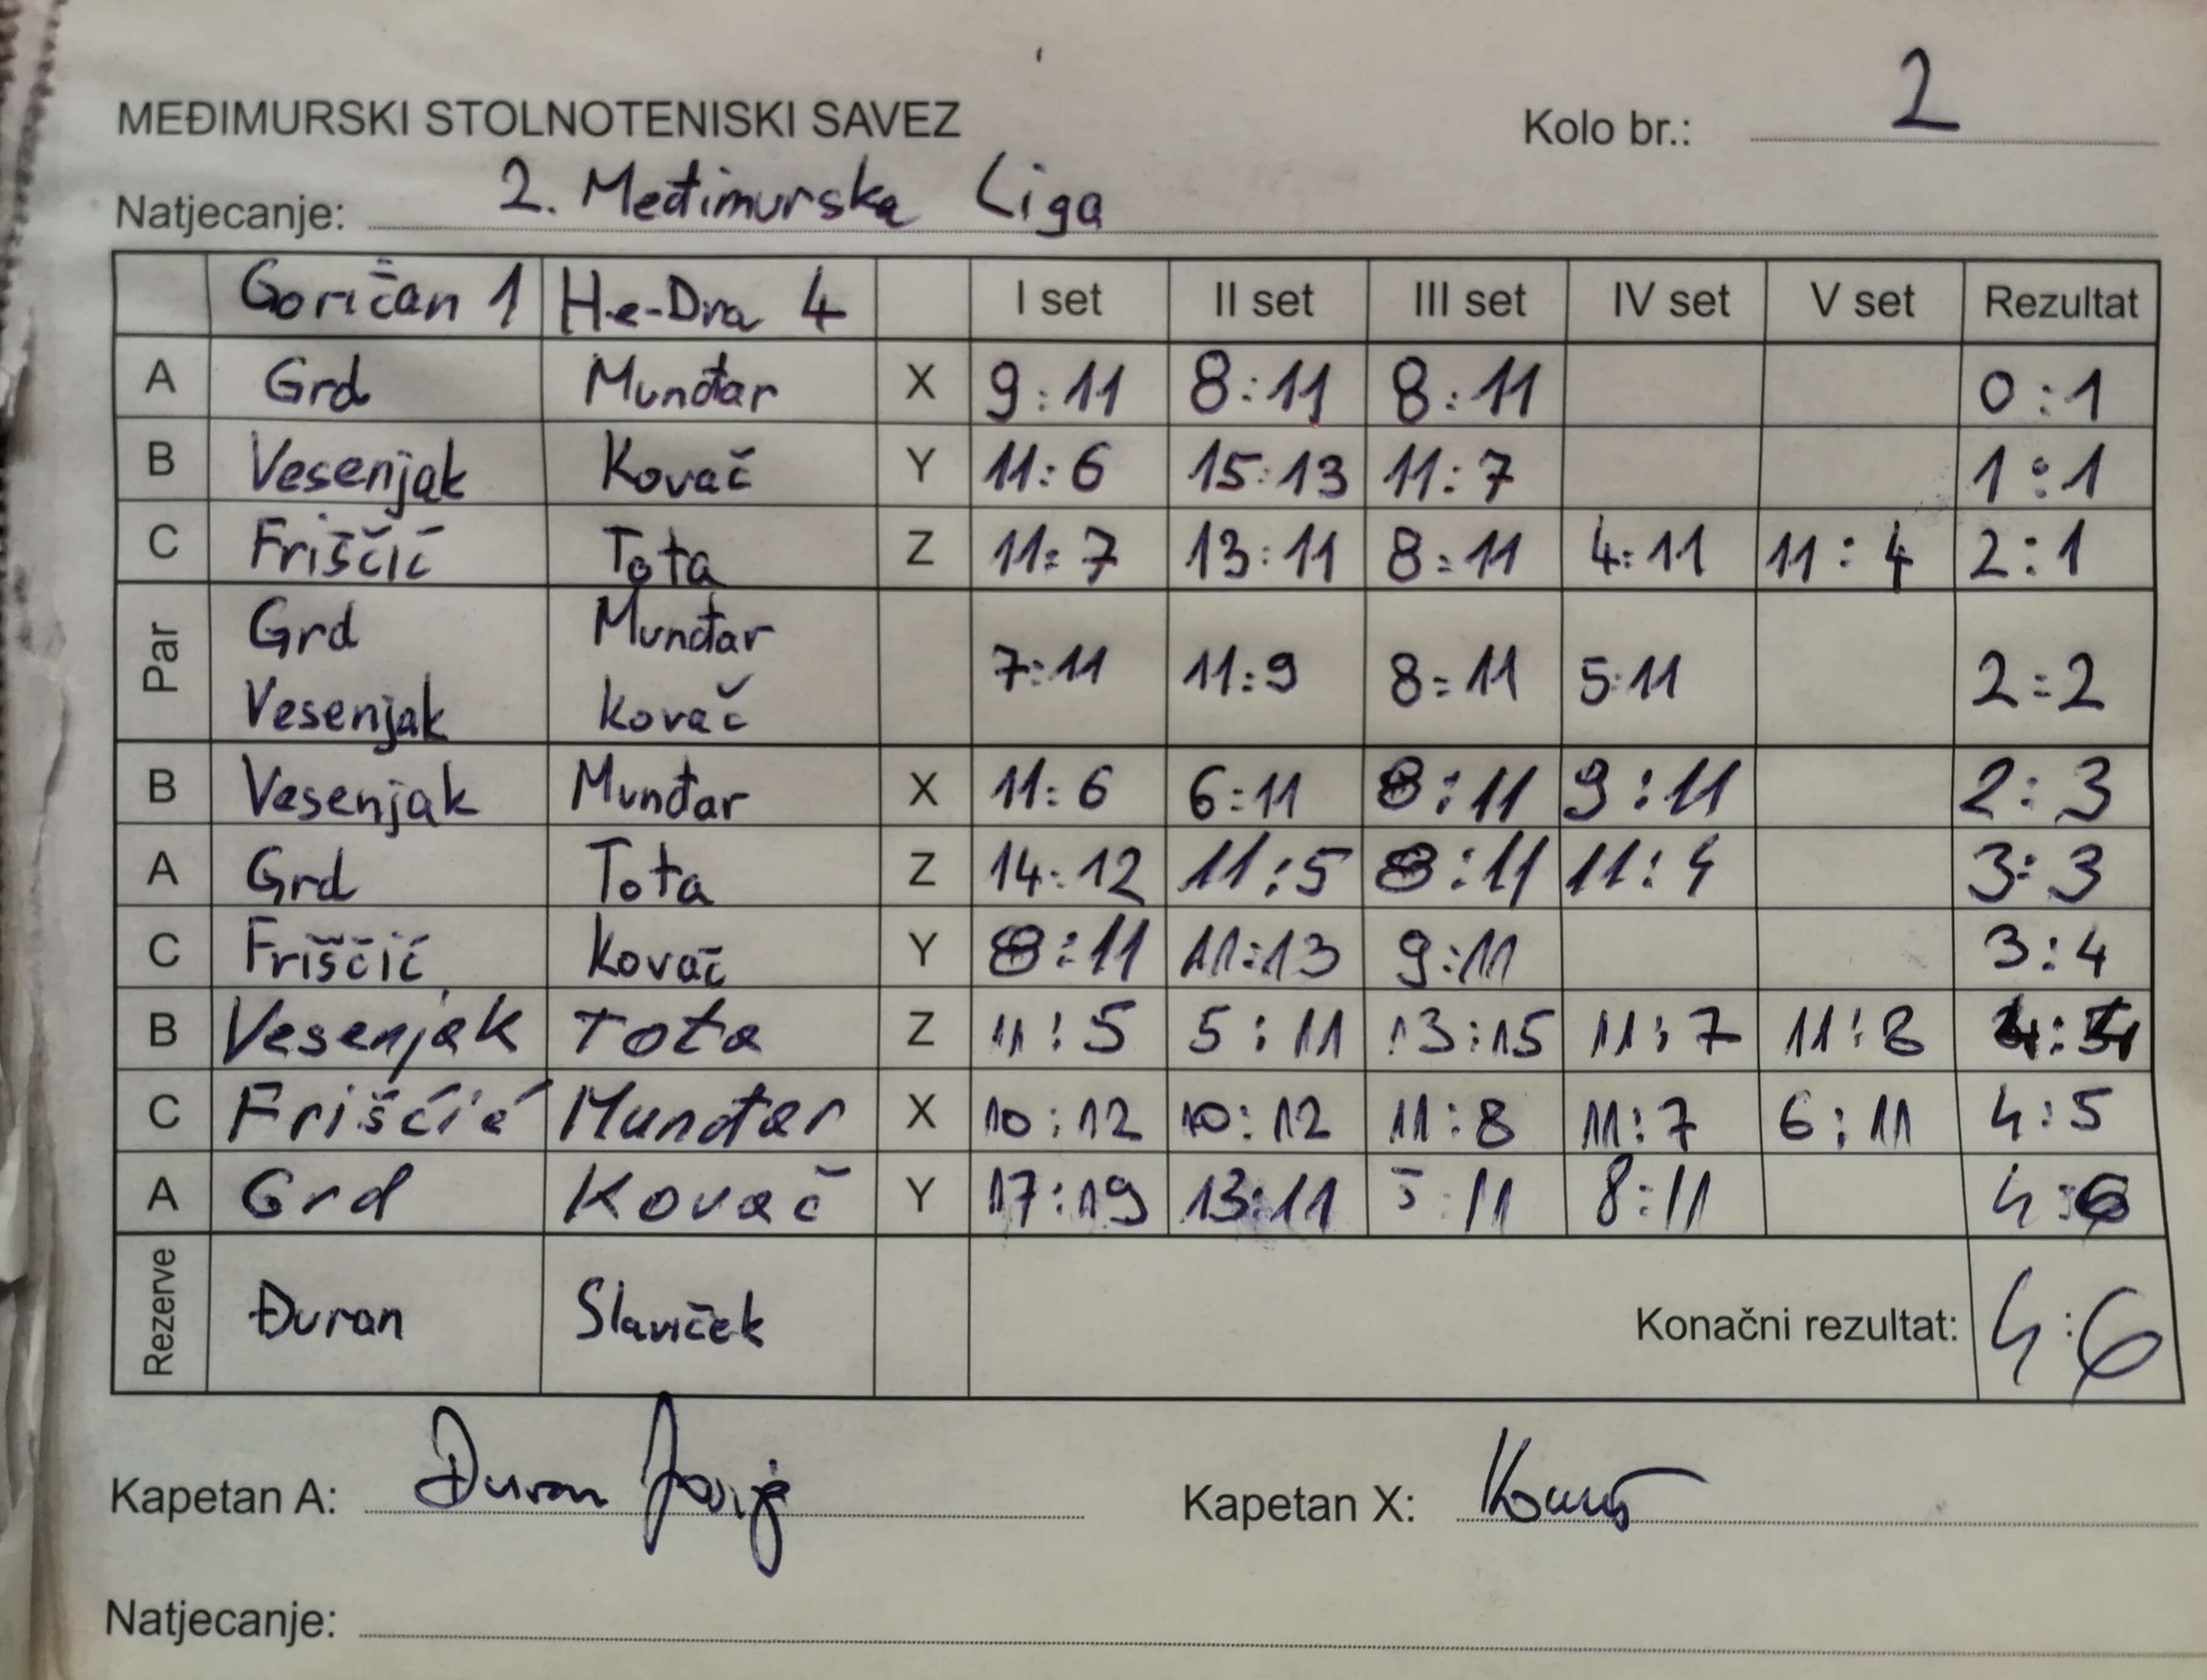 MEĐIMURSKI STOLNOTENISKI SAVEZ Kolo br.: 2
Natjecanje: 2. Međimurska Liga
Goričan 1 He-Dra 4 I set II set III set IV set V set Rezultat
A Grd Munđar X 9:11 8:11 8:11 0:1
B Vesenjak Kovač Y 11:6 15:13 11:7 1:1
C Friščić Tota Z 11:7 13:11 8:11 4:11 11:4 2:1
Par Grd Munđar 7:11 11:9 8:11 5:11 2:2
Vesenjak Kovač
B Vesenjak Munđar X 11:6 6:11 8:11 9:11 2:3
A Grd Tota Z 14:12 11:5 8:11 11:4 3:3
C Friščić Kovač Y 8:11 11:13 9:11 3:4
B Vesenjak Tota Z 11:5 5:11 13:15 11:7 11:8 4:4
C Friščić Munđar X 10:12 10:12 11:8 11:7 6:11 4:5
A Grd Kovač Y 17:19 13:11 5:11 8:11 4:6
Rezerve Đuran Slaviček Konačni rezultat: 4:6
Kapetan A: Đuran Kapetan X:
Natjecanje: